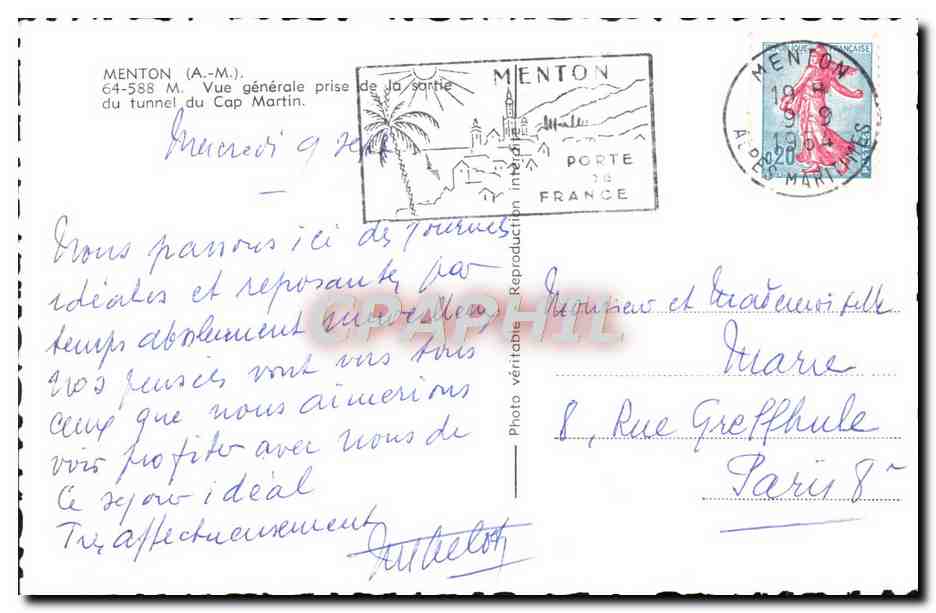 MENTON (A.-M.).
64-588 M. Vue générale prise de la sortie
du tunnel du Cap Martin.
MENTON
PORTE
DE
FRANCE
MENTON
19 H
9-9
1964
ALPES MARITIMES
RÉPUBLIQUE FRANÇAISE
0,20
POSTES
Mercredi 9 Sept
Nous passons ici des journées
idéales et reposantes par
temps absolument merveilleux
Nos pensées vont vers tous
ceux que nous aimerions
voir profiter avec nous de
Ce séjour idéal
Tres affectueusement
Photo véritable Reproduction interdite
CPAPHIL
Monsieur et Mademoiselle
Marie
8, Rue Greffhule
Paris 8e